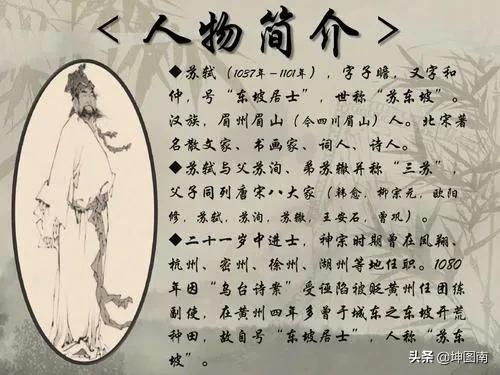 < 人物简介 >
◆苏轼(1037年-1101年),字子瞻,又字和
仲,号“东坡居士”,世称“苏东坡”。
汉族,眉州眉山(今四川眉山)人。北宋著
名散文家、书画家、词人、诗人。
◆苏轼与父苏洵、弟苏辙并称“三苏”,
父子同列唐宋八大家(韩愈,柳宗元,欧阳
修,苏轼,苏洵,苏辙,王安石,曾巩)。
◆二十一岁中进士,神宗时期曾在凤翔、
杭州、密州、徐州、湖州等地任职。1080
年因“乌台诗案”受诬陷被贬黄州任团练
副使,在黄州四年多曾于城东之东坡开荒
种田,故自号“东坡居士”,人称“苏东
坡”。
头条 @坤图南